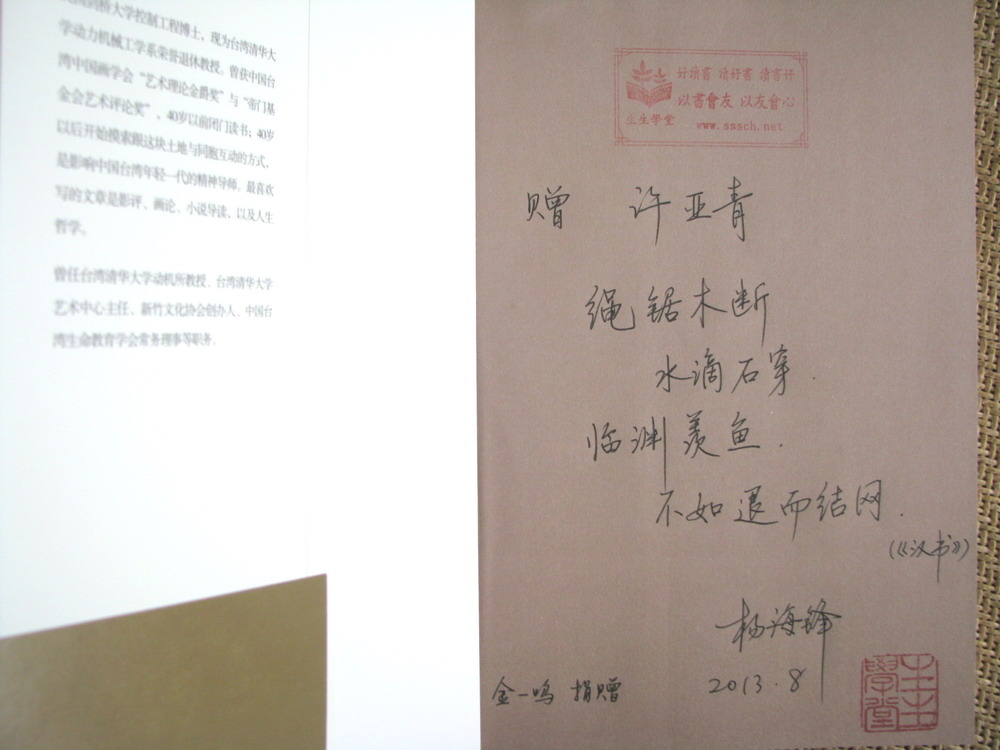 剑桥大学控制工程博士，现为台湾清华大
学动力机械工学系荣誉退休教授。曾获中国台
湾中国画学会“艺术理论金爵奖”与“帝门基
金会艺术评论奖”，40岁以前闭门读书；40岁
以后开始摸索跟这块土地与同胞互动的方式，
是影响中国台湾年轻一代的精神导师。最喜欢
写的文章是影评、画论、小说导读，以及人生
哲学。
曾任台湾清华大学动机所教授、台湾清华大学
艺术中心主任、新竹文化协会创办人、中国台
湾生命教育学会常务理事等职务。
好讀書 讀好書 讀書好
以書會友 以友會心
生生學堂
www.sssch.net
赠 许亚青
绳锯木断
水滴石穿.
临渊羡鱼.
不如退而结网.
(《汉书》)
杨海锋
金一鸣 捐赠 2013.8
生生學堂